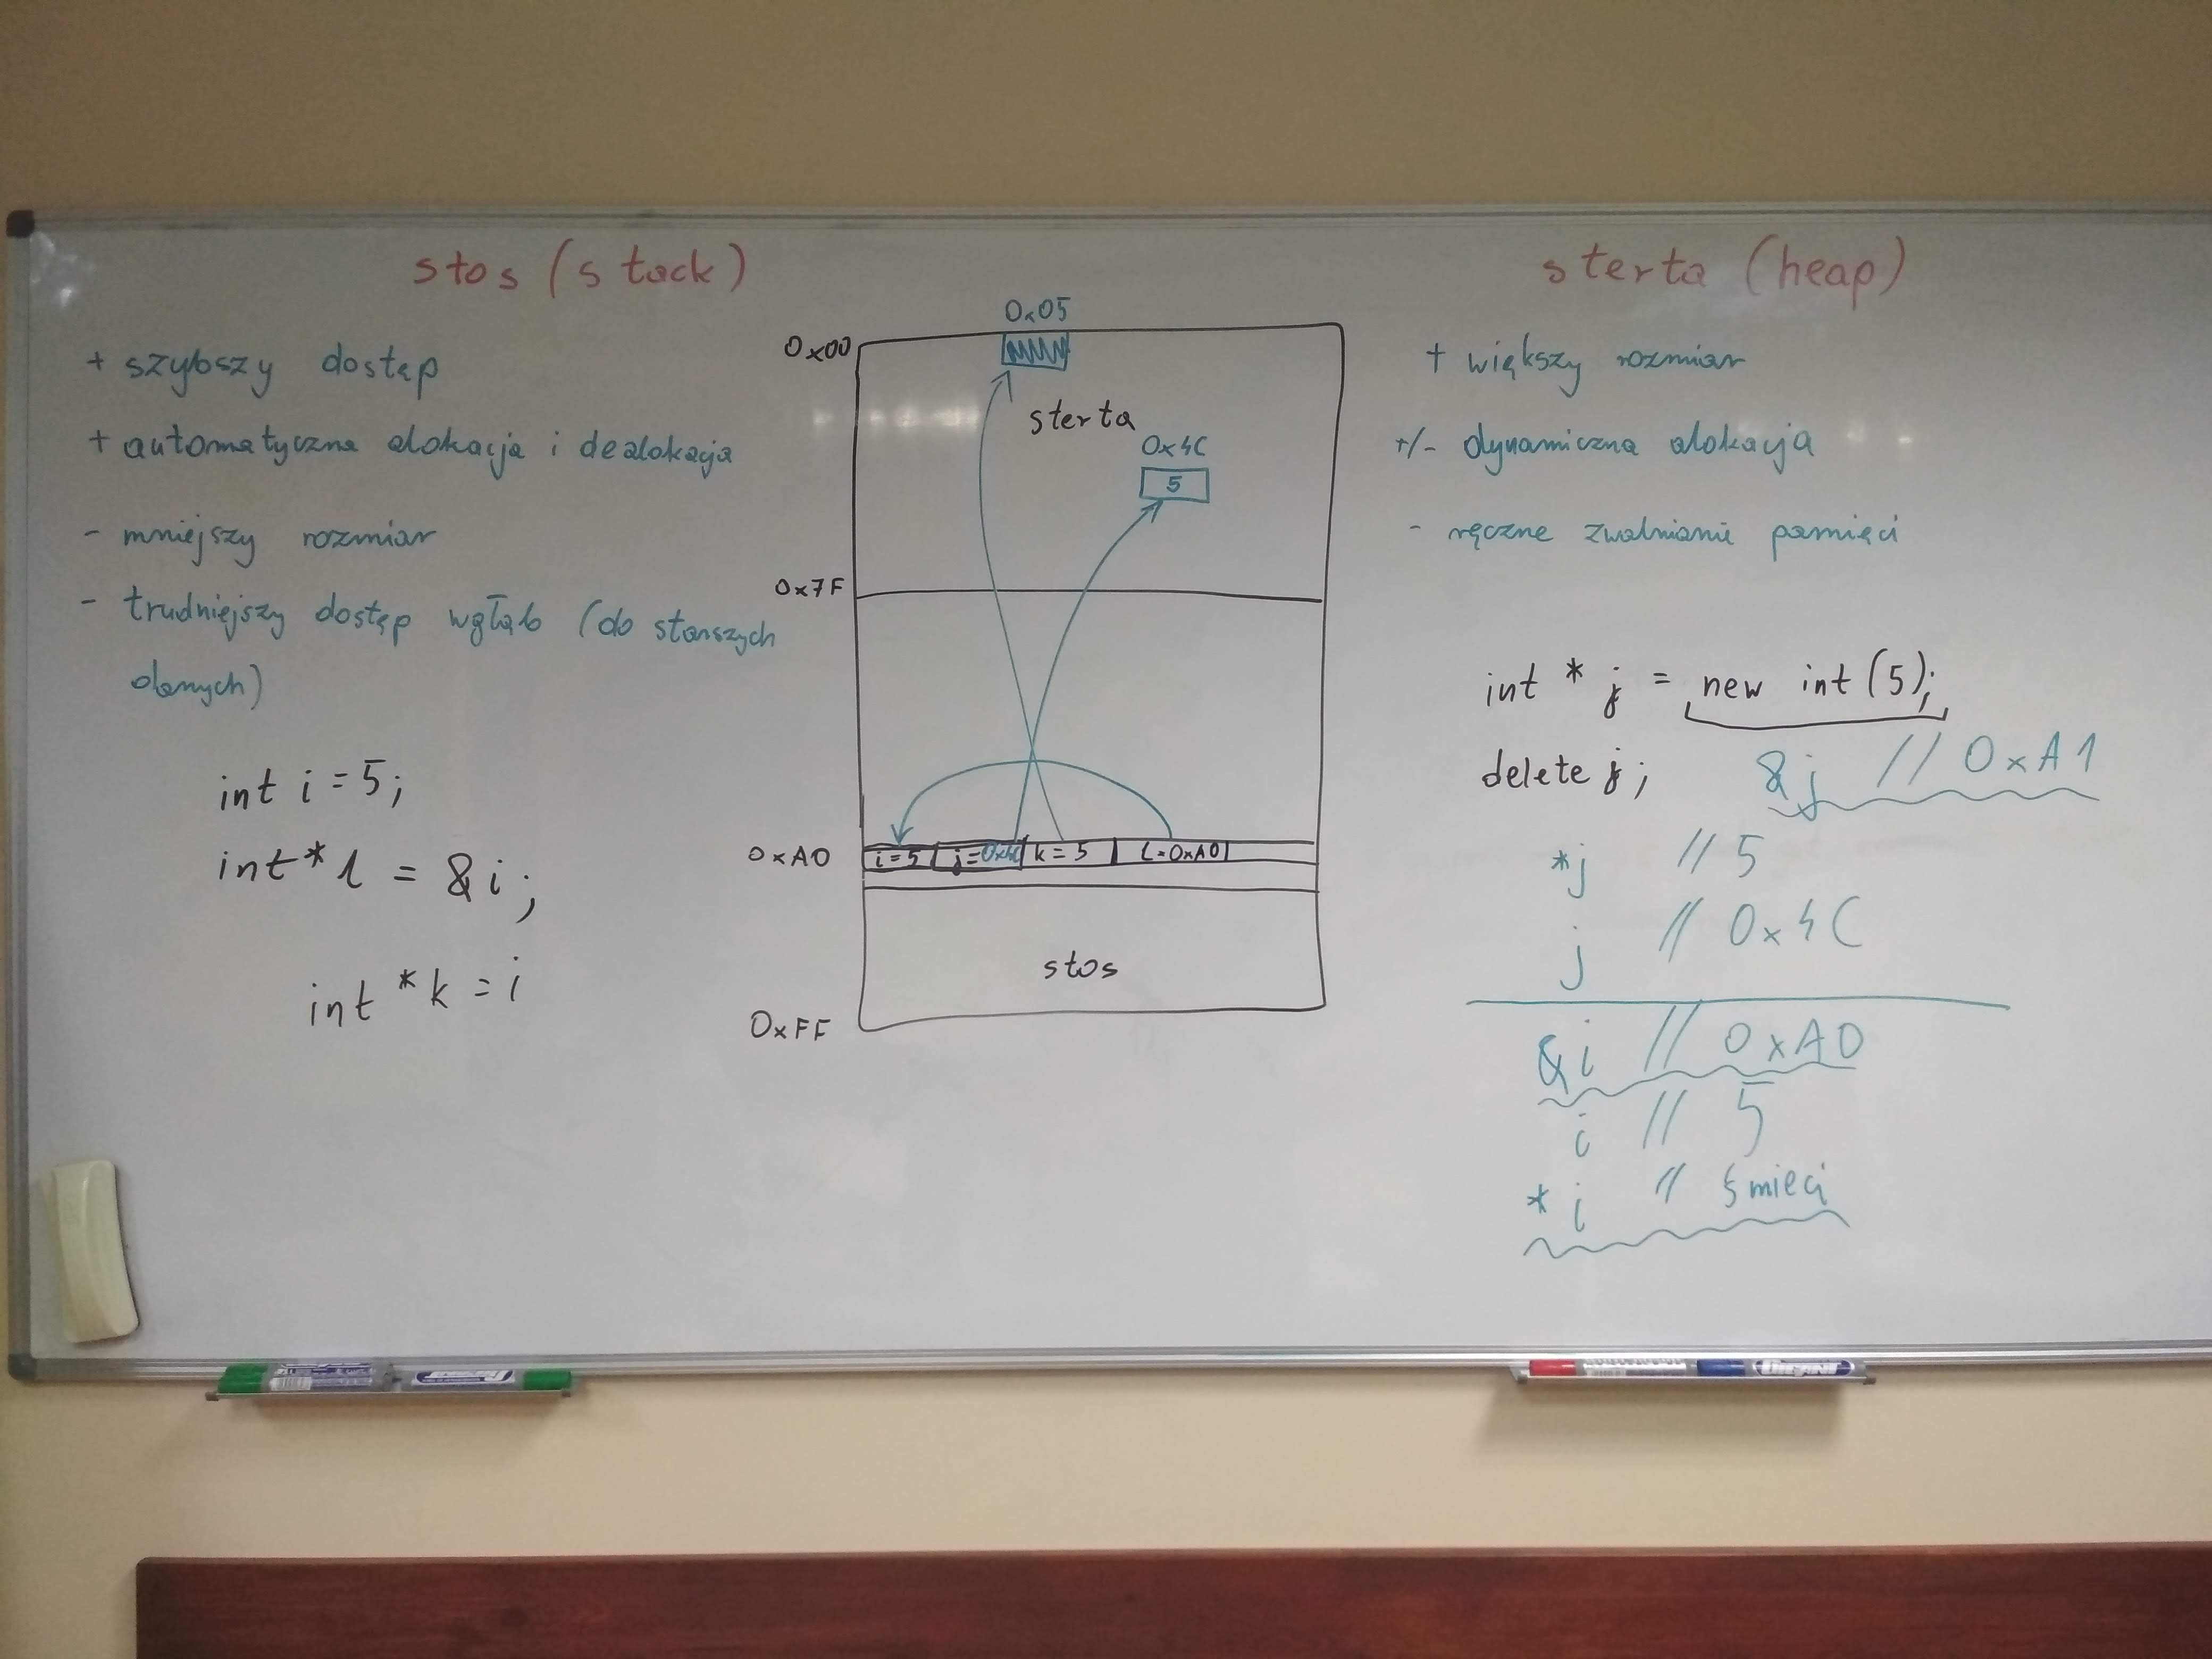 stos (stack)
+ szybszy dostęp
+ automatyczna alokacja i dealokacja
- mniejszy rozmiar
- trudniejszy dostęp wgłąb (do starszych
danych)
int i = 5;
int* l = &i;
int *k = i
0x05
0x00
sterta
0x4C
5
0x7F
0xA0
i=5
j=0x4C
k=5
L=0xA0
stos
0xFF
sterta (heap)
+ większy rozmiar
+/- dynamiczna alokacja
- ręczne zwalnianie pamięci
int * j = new int (5);
delete j;
&j // 0xA1
*j // 5
j // 0x4C
&i // 0xA0
i // 5
* i // śmieci